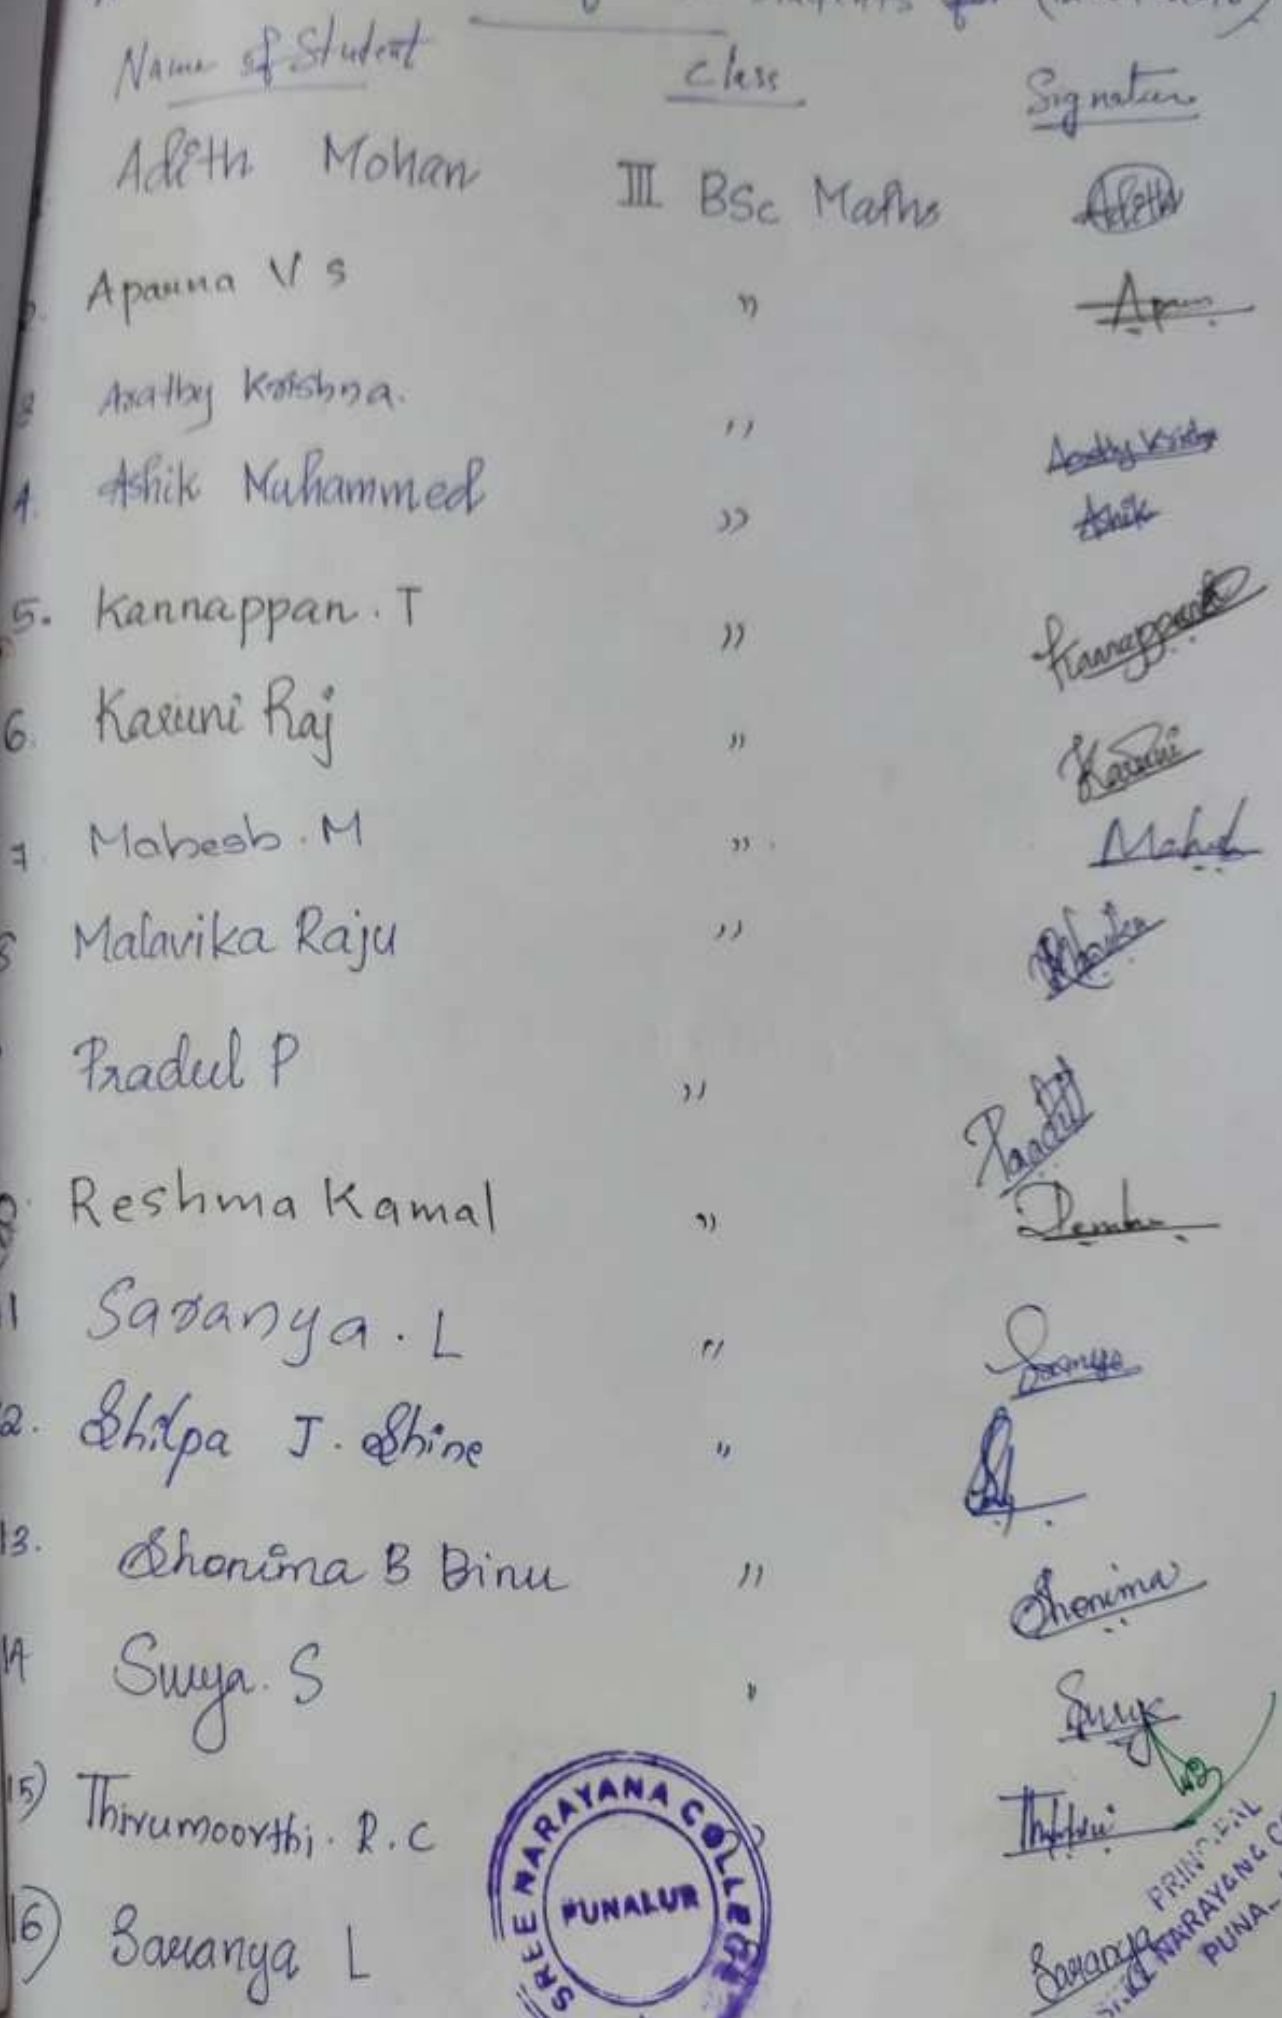 Name of Student Class Signature
Adith Mohan III BSc Maths Adith
Aparna V S " Aparn
3 Arathy Krishna. " Arathy Krishna
4. Ashik Muhammed " Ashik
5. Kannappan. T " Kannappan
6. Karuni Raj " Karuni
7. Mahesh. M " Mahesh
8 Malavika Raju " Malavika
Pradul P " Pradul
Reshma Kamal "
11 Saranya. L " Saranya
12. Shilpa J. Shine "
13. Shonima B Binu " Shonima
14 Surya. S " Surya
15) Thirumoorthi. R. C
16) Saranya L Saranya
SREE NARAYANA COLLEGE
PUNALUR
PRINCIPAL
NARAYANA